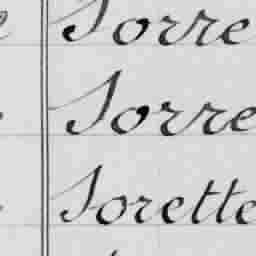 Sorre
Sorre
Sorette